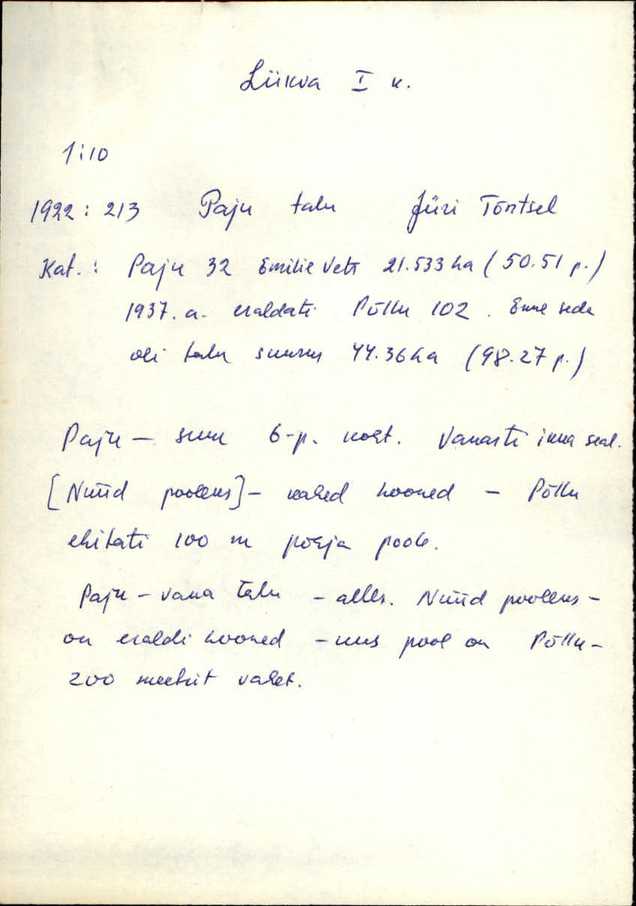 Liikva I k.
1:10
1922: 213 Paju talu Jüri Tõntsel
Kat.: Paju 32 Emilie Vets 21.533 ha (50.51 p.)
1937. a. eraldati Põllu 102. Enne seda
oli talu suurus 44.36 ha (98.27 p.)
Paju – suur 6-p. koht. Vanasti ikka seal.
[Nüüd pooleks] – kahed hooned – Põllu
ehitati 100 m põhja poole.
Paju – vana talu – alles. Nüüd pooleks –
on eraldi hooned – uus pool on Põllu –
200 meetrit vahet.